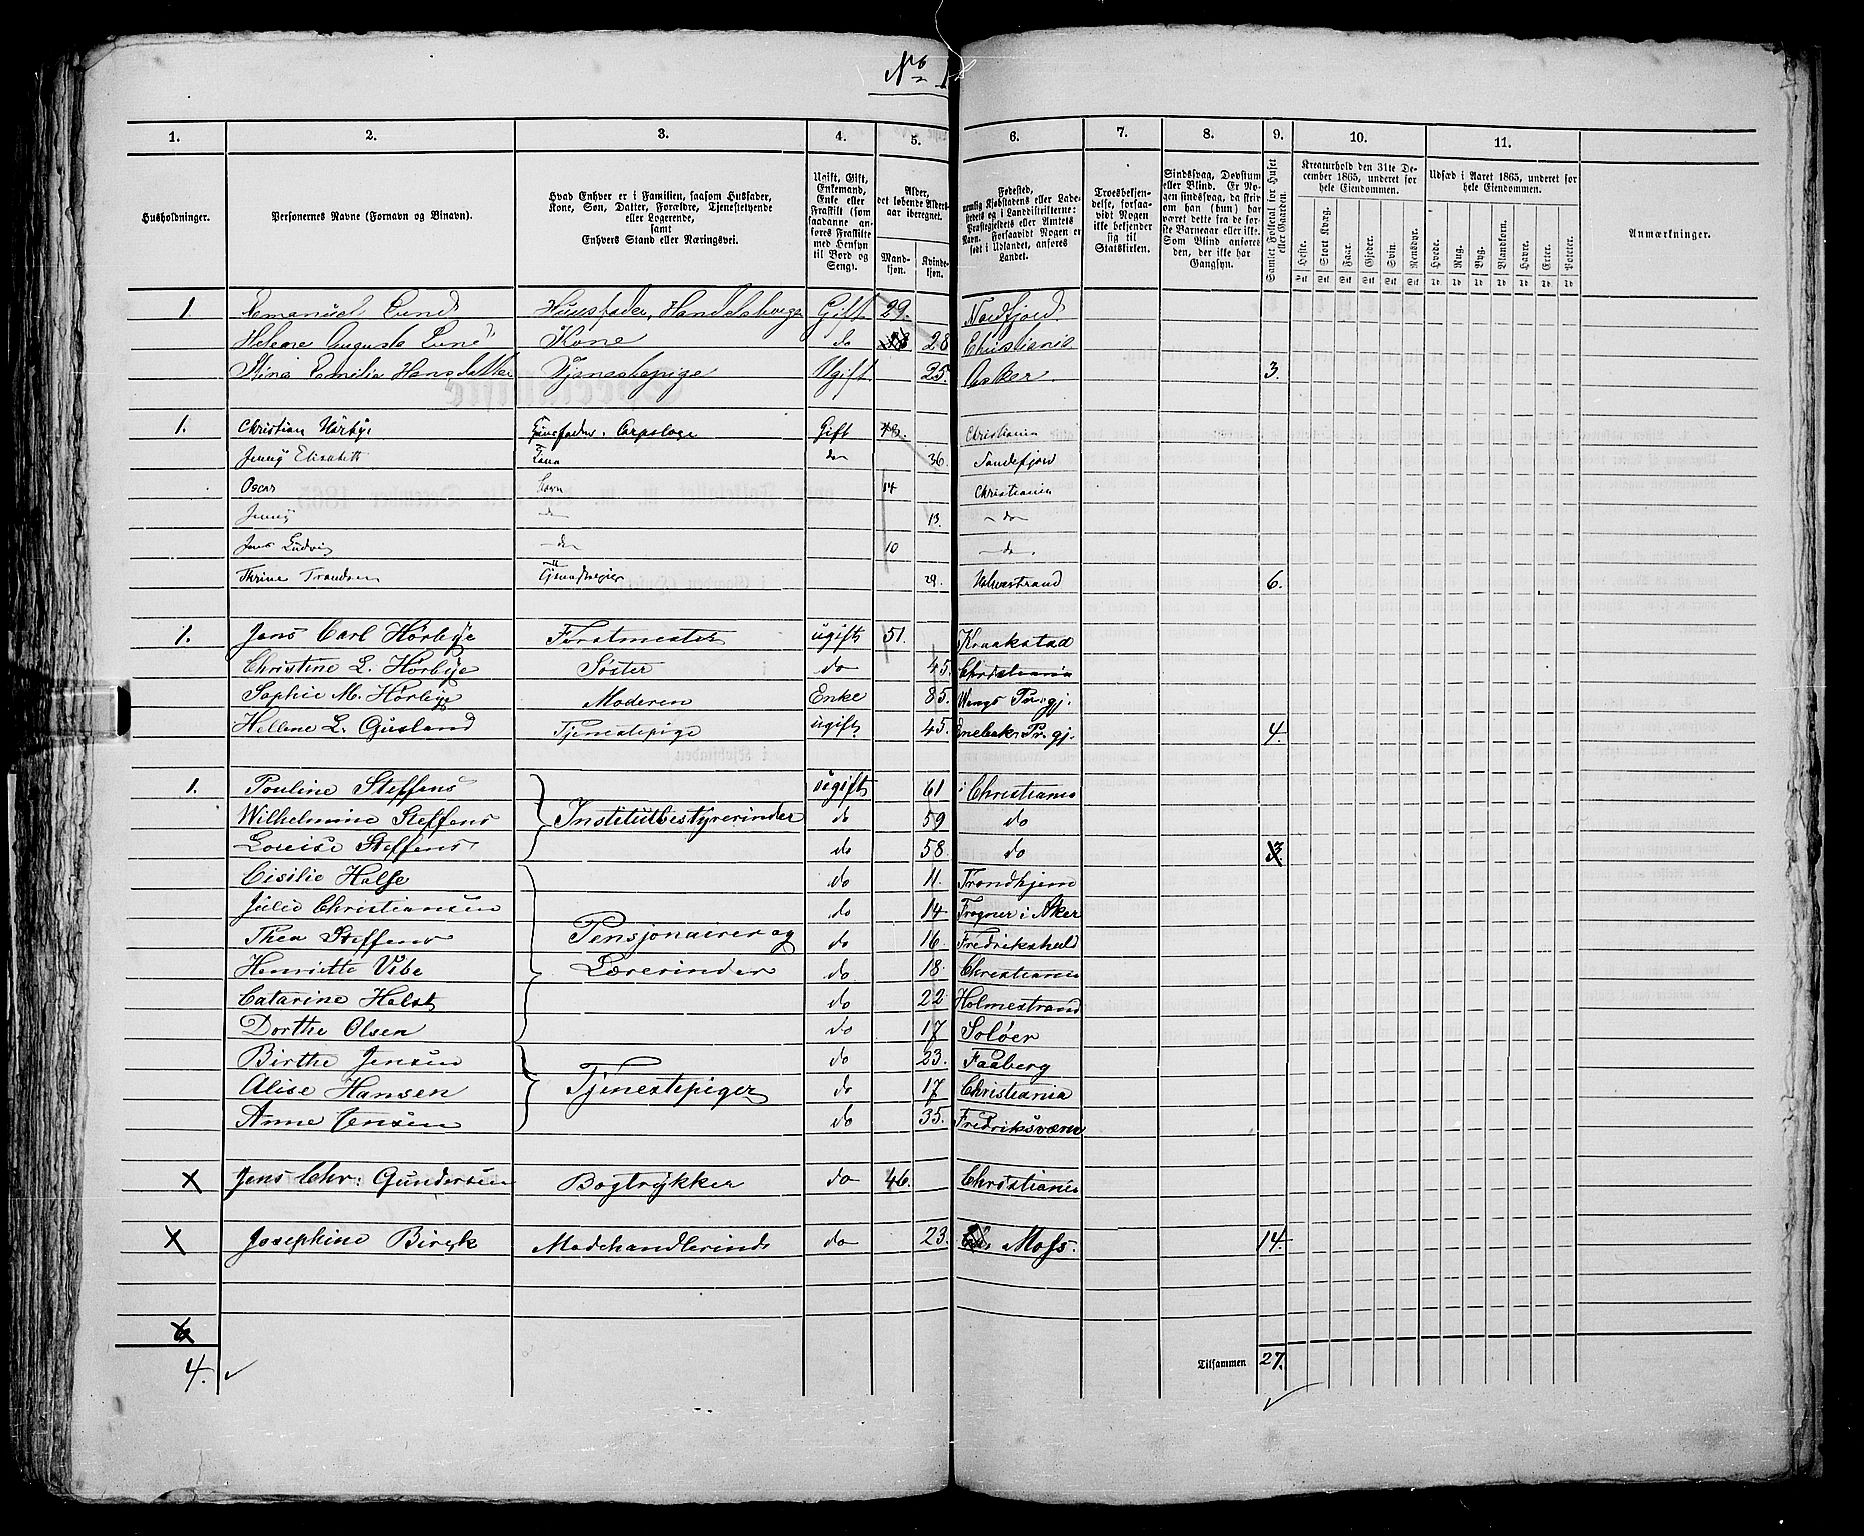 No 1
1. 2. 3. 4. 5. 6. 7. 8. 9. 10. 11.
Husholdninger.
Personernes Navne (Fornavn og Binavn).
Hvad Enhver er i Familien, saasom Husfader,
Kone, Søn, Datter, Forældre, Tjenestetyende
eller Logerende,
samt
Enhvers Stand eller Næringsvei.
Ugift, Gift,
Enkemand,
Enke eller
Fraskilt (som
saadanne anføres Fraskilte
med Hensyn
til Bord og
Seng).
Alder,
det løbende Aldersaar iberegnet.
Mandkjøn.
Kvindekjøn.
Fødested,
nemlig Kjøbstadens eller Ladestedets og i Landdistrikterne:
Præstegjeldets eller Amtets
Navn. Forsaavidt Nogen er
født i Udlandet, anføres
Landet.
Troesbekjendelse, forsaavidt Nogen
ikke bekjender
sig til
Statskirken.
Sindssvag, Døvstum
eller Blind. Er Nogen sindssvag, da skrives
om han (hun) har
været dette fra de første Barneaar eller ikke.
Som Blind anføres
den, der ikke har
Gangsyn.
Samlet Folketal for Huset eller Gaarden.
Kreaturhold den 31te December 1865, underet for
hele Eiendommen.
Heste. Stort Kvæg. Faar. Gjeder. Svin. Rensdyr.
Udsæd i Aaret 1865, underet for
hele Eiendommen.
Hvede. Rug. Byg. Blandkorn. Havre. Erter. Poteter.
Anmærkninger.
1 Emanuel Lund Huusfader, Gift 29. Nordfjord
Helene Augusta Lund Kone do 28 Christiania
Stina Emilie Hansdatter Tjenestepige Ugift 25. Asker 3.
1. Christian Hørbye Huusfader. Corpslæge Gift 43. Christiania
Jenny Elisabeth Kone do 36. Sandefjord
Oscar Børn 14 Christiania
Jenny do 13. do
Jens Ludvig do 10 do
Thrine Trondsen 29. Holmestrand 6.
1. Jens Carl Hørbye Forstmester ugift 51. Kraakstad
Christine L. Hørbye Søster do 45. Christiania
Sophie M. Hørbye Moderen Enke 85. Prgj.
Hellene L. Gusland Tjenestepige ugift 45. Enebak Prgj. 4.
1. Pouline Steffens ugift 61 i Christiania
Wilhelmine Steffens Institutbestyrerinder do 59 do
Lovise Steffens do 58. do 3.
Cisilie Halse do 11. Trondhjem
Julie Christiansen do 14 Frogner i Aker
Thea Steffens Pensjonairer og do 16 Fredrikshald
Henriette Vibe Lærerinder do 18. Christiania
Catarine Holst do 22 Holmestrand
Dorthe Olsen do 17 Soløer
Birthe Jensen do 23. Faaberg
Alise Hansen Tjenestepiger do 17 Christiania
Anne Jensen do 35. Fredriksværn
x Jens Chr: Gundersen Bogtrykker do 46. Christiania
x Josephine Birck Modehandlerinde do 23. Moss. 14.
6
4. Tilsammen 27.